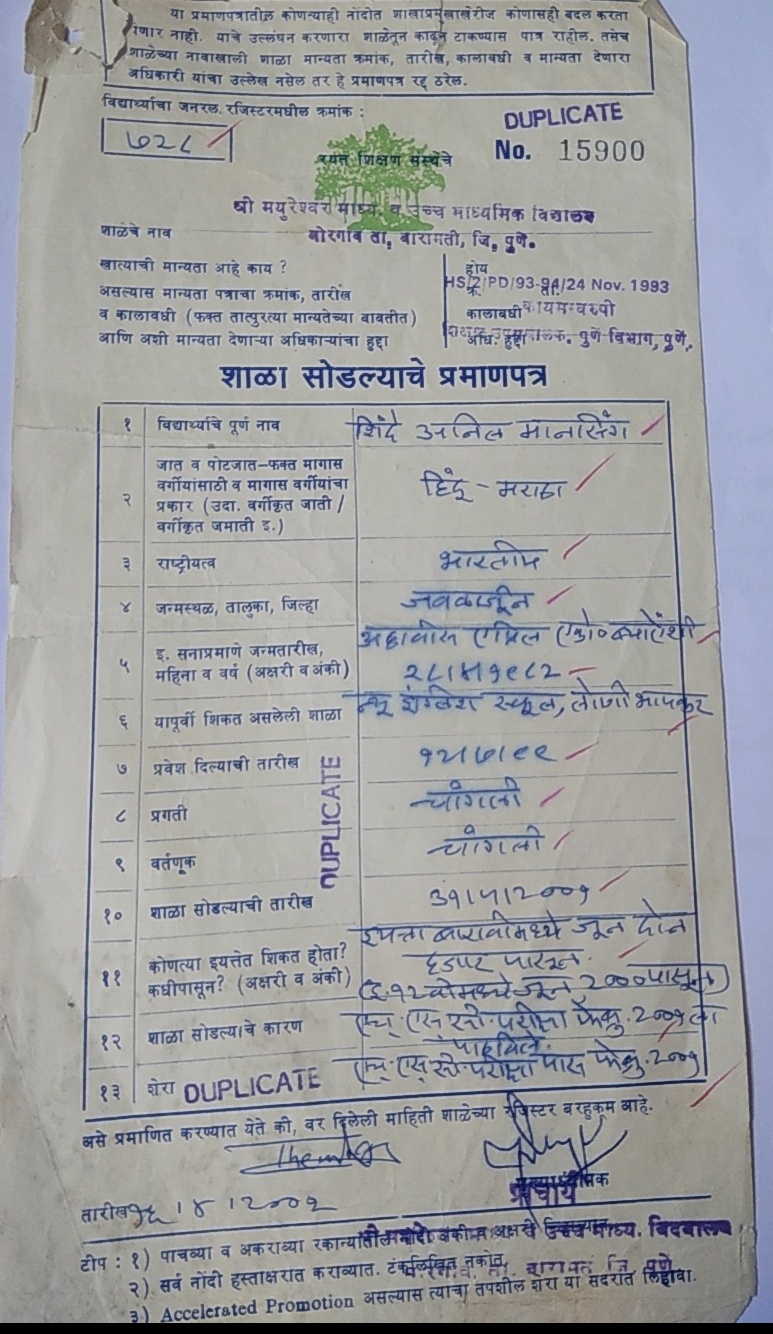 या प्रमाणपत्रातील कोणत्याही नोंदीत शाखाप्रमुखाखेरीज कोणासही बदल करता
येणार नाही. याचे उल्लंघन करणारा शाळेतून काढून टाकण्यास पात्र राहील. तसेच
शाळेच्या नावाखाली शाळा मान्यता क्रमांक, तारीख, कालावधी व मान्यता देणारा
अधिकारी यांचा उल्लेख नसेल तर हे प्रमाणपत्र रद्द ठरेल.
विद्यार्थ्याचा जनरल रजिस्टरमधील क्रमांक :
DUPLICATE
७२८
रयत शिक्षण संस्थेचे
No. 15900
श्री मयुरेश्वर माध्य. व उच्च माध्यमिक विद्यालय
शाळेचे नाव मोरगांव ता. बारामती, जि. पुणे.
खात्याची मान्यता आहे काय ? होय
असल्यास मान्यता पत्राचा क्रमांक, तारीख क्र. HS/2/PD/93-94/24 Nov. 1993
व कालावधी (फक्त तात्पुरत्या मान्यतेच्या बाबतीत) कालावधी कायमस्वरुपी
आणि अशी मान्यता देणाऱ्या अधिकाऱ्यांचा हुद्दा अधि. हुद्दा पुणे विभाग, पुणे.
शाळा सोडल्याचे प्रमाणपत्र
१ विद्यार्थ्याचे पूर्ण नाव शिंदे अनिल मानसिंग
२ जात व पोटजात-फक्त मागास
वर्गीयांसाठी व मागास वर्गीयांचा
प्रकार (उदा. वर्गीकृत जाती /
वर्गीकृत जमाती इ.)
हिंदू - मराठा
३ राष्ट्रीयत्व भारतीय
४ जन्मस्थळ, तालुका, जिल्हा जवळार्जून
५ इ. सनाप्रमाणे जन्मतारीख,
महिना व वर्ष (अक्षरी व अंकी)
अठ्ठावीस एप्रिल एको० ब्याऐंशी
२८।४।१९८२
६ यापूर्वी शिकत असलेली शाळा न्यू इंग्लिश स्कूल, लोणी भापकर
७ प्रवेश दिल्याची तारीख १२।७।९९
८ प्रगती चांगली
DUPLICATE
९ वर्तणूक चांगली
१० शाळा सोडल्याची तारीख ३१।५।२००१
११ कोणत्या इयत्तेत शिकत होता?
कधीपासून? (अक्षरी व अंकी)
इयत्ता बारावीमध्ये जून दोन
हजार पासून.
(इ.१२ वीमध्ये जून २००० पासून)
१२ शाळा सोडल्याचे कारण एच.एस.सी. परीक्षा फेब्रु. २००१ ला
पाठविले.
१३ शेरा DUPLICATE एच.एस.सी. परीक्षा पास फेब्रु. २००१
असे प्रमाणित करण्यात येते की, वर दिलेली माहिती शाळेच्या रजिस्टर बरहुकूम आहे.
मुख्याध्यापक
प्राचार्य
तारीख
टीप : १) पाचव्या व अकराव्या रकान्यातील अक्षरी
उच्च माध्य. विद्यालय
२) सर्व नोंदी हस्ताक्षरात कराव्यात. टंकलिखित नकोत.
३) Accelerated Promotion असल्यास त्याचा तपशील शेरा या सदरात लिहावा.